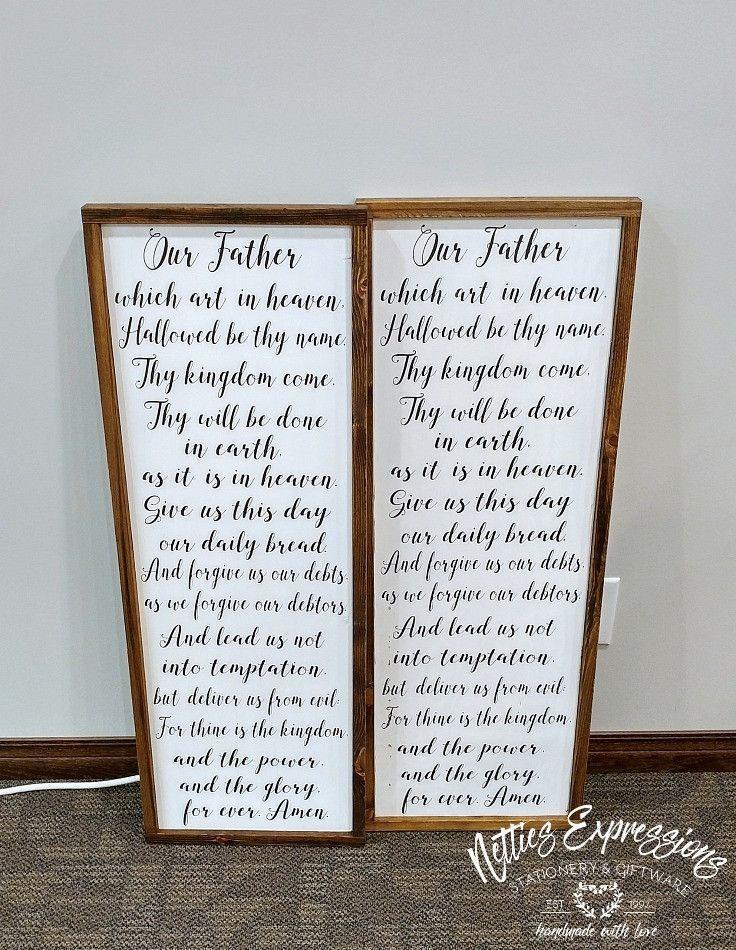 Our Father
which art in heaven,
Hallowed be thy name.
Thy kingdom come.
Thy will be done
in earth,
as it is in heaven.
Give us this day
our daily bread.
And forgive us our debts,
as we forgive our debtors.
And lead us not
into temptation,
but deliver us from evil:
For thine is the kingdom,
and the power,
and the glory,
for ever. Amen.
Our Father
which art in heaven,
Hallowed be thy name.
Thy kingdom come.
Thy will be done
in earth,
as it is in heaven.
Give us this day
our daily bread.
And forgive us our debts,
as we forgive our debtors.
And lead us not
into temptation,
but deliver us from evil:
For thine is the kingdom,
and the power,
and the glory,
for ever. Amen.
Netties Expressions
STATIONERY & GIFTWARE
EST. 1994
handmade with love